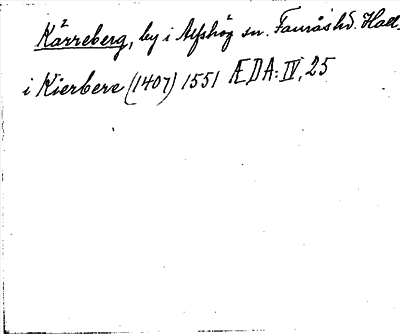 Kärreberg, by i Alfshög sn. Faurås hd. Hall.
i Kierbere (1407) 1551 ÆDA: IV, 25